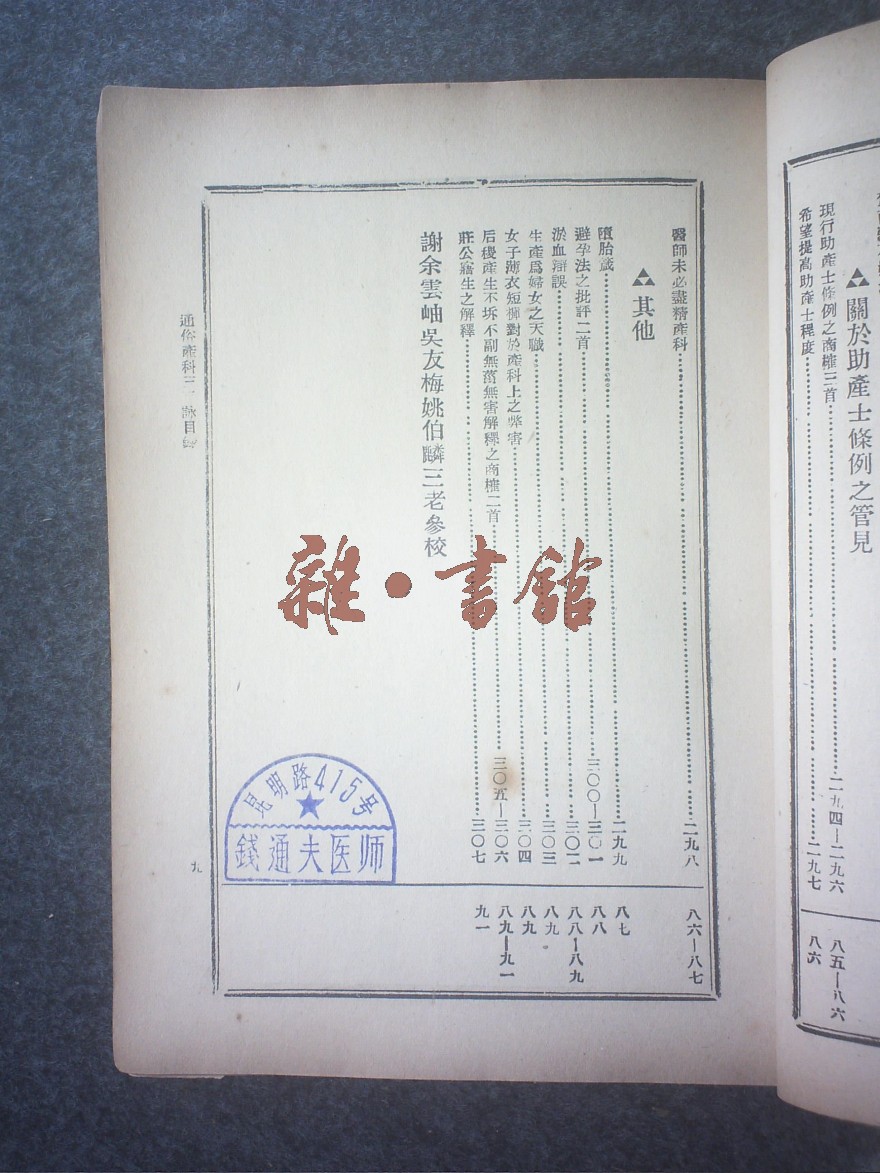 關於助產士條例之管見
現行助產士條例之商榷三首……二九四—二九六 八五—八六
希望提高助產士程度……二九七 八六
醫師未必盡精產科……二九八 八六—八七
其他
墮胎箴……二九九 八七
避孕法之批評二首……三〇〇—三〇一 八八
淤血辯誤……三〇二 八八—八九
生產爲婦女之天職……三〇三 八九
女子薄衣短褲對於產科上之弊害……三〇四 八九
后稷產生不坼不副無菑無害解釋之商榷二首……三〇五—三〇六 八九—九一
莊公寤生之解釋……三〇七 九一
謝余雲岫吳友梅姚伯麟三老參校
通俗產科三 詠目錄
九
雜·書館
昆明路415号
錢通夫医师